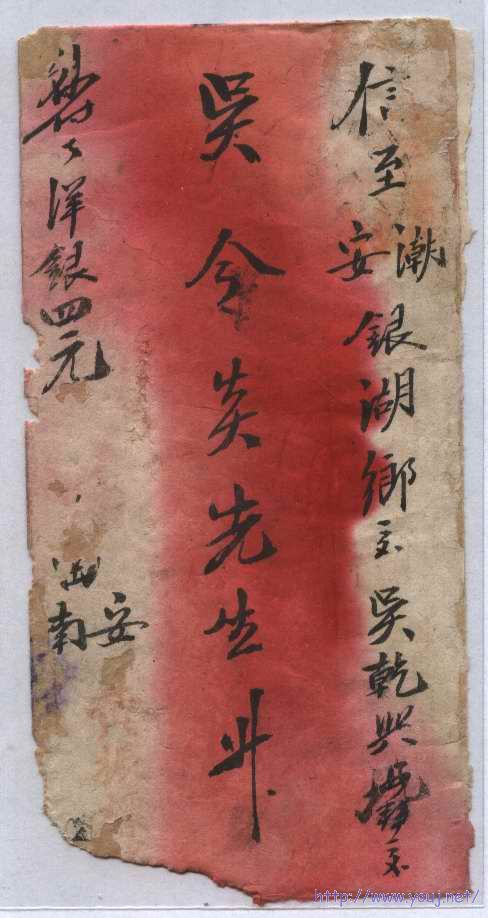 信至
潮安銀湖鄉交吳乾興
交
吳令炎先生升
洋銀四元
南安
http://www.youj.net/